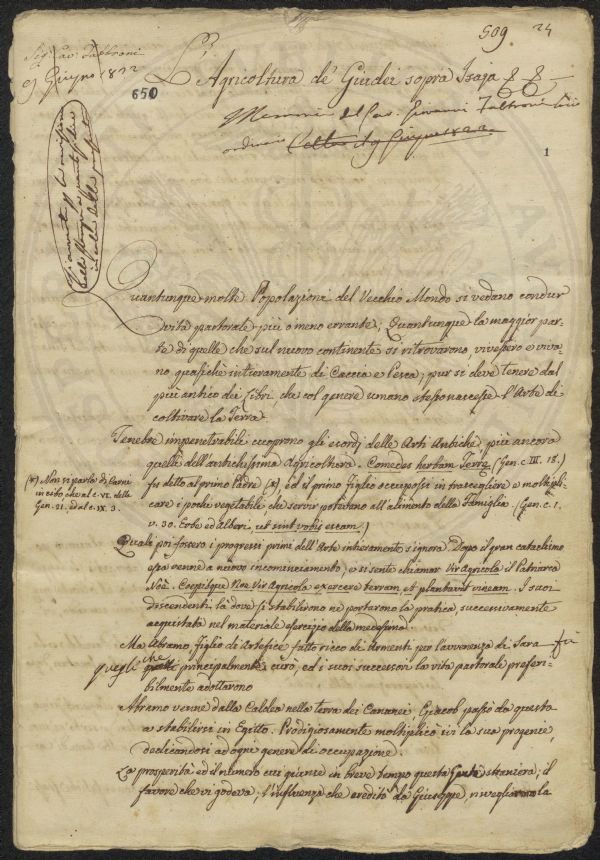 509 24
Sig. Cav. Fabbroni
9 Giugno 1822
L'Agricoltura de' Giudei sopra Isaja
650
Memoria del Cav. Giovanni Fabbroni
ordinario Letta il 9 Giugno 1822
1
Quantunque molte Popolazioni del Vecchio Mondo si vedano condur
vita pastorale più o meno errante; Quantunque la maggior par-
te di quelle che sul nuovo continente si ritrovarono, vivessero e viva-
no quasiche intieramente di Caccia e Pesca, pur si deve tenere dal
più antico dei Libri che col genere umano stesso nascesse l'Arte di
coltivare la Terra.
Tenebre impenetrabili cuoprono gli esordj delle Arti Antiche, più ancora
quelli dell'antichissima Agricoltura. Comedes herbam Terre (Gen. c. III. 18.)
fu detto al primo Padre (*), ed il primo figlio occupossi in trascegliere e moltipli-
care i pochi vegetabili che servir potevano all'alimento della Famiglia. (Gen. c. 1.
v. 30. Erbe ed Alberi, ut sint vobis escam.)
(*) Non si parla di Carni
in esto che al c. VI. delle
Gen. 21. ed al c. IX. 3.
Quali poi fossero i progressi primi dell'Arte intieramente s'ignora. Dopo il gran cataclismo
essa venne a nuovo incominciamento, e si sente chiamar Vir Agricola il Patriarca
Noè. Coepitque Noe Vir Agricola exercere terram, et plantavit vineam. I suoi
discendenti là dove si stabilirono ne portarono la pratica, successivamente
acquistata nel materiale esercizio della medesima.
Ma Abramo, figlio di Artefice fatto ricco de Armenti per l'avvenenza di Sara fù
quegli che principalmente curò, ed i suoi successori la vita pastorale preferi-
bilmente adottarono
Abramo venne dalla Caldea nella terra dei Cananei; Giacob passò da questa
a stabilirsi in Egitto. Prodigiosamente moltiplicò ivi la sua progenie,
dedicandosi ad ogni genere di occupazione.
La prosperità ed il numero cui giunse in breve tempo questa Gente straniera; il
favore che vi godeva; l'influenza che ereditò da Giuseppe, risvegliarono la